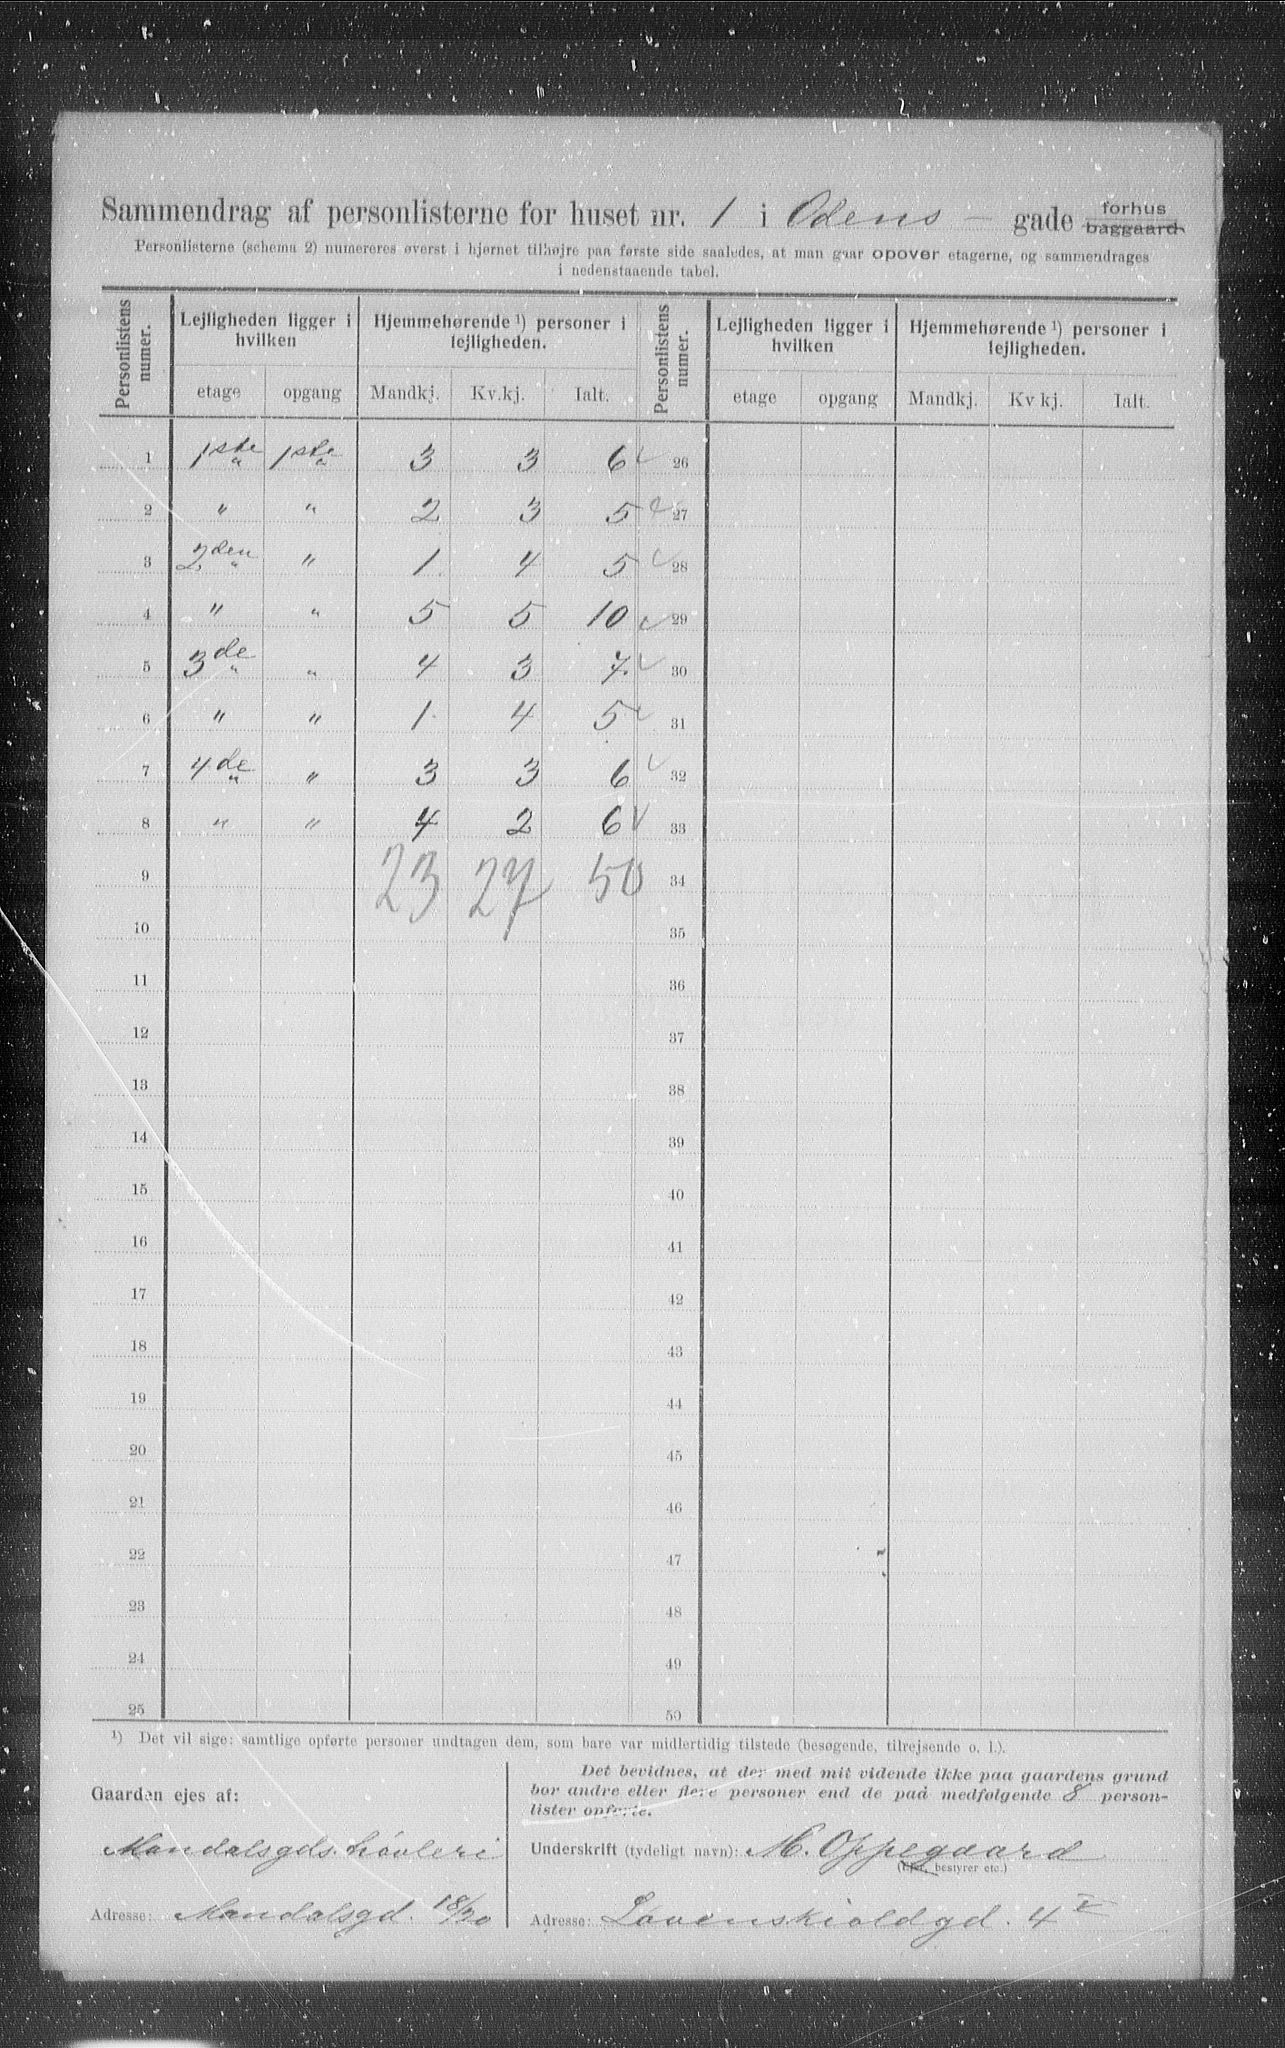 Sammendrag af personlisterne for huset nr. 1 i Odens - gade forhus baggaard
Personlisterne (schema 2) numereres øverst i hjørnet tilhøjre paa første side saaledes, at man gaar opover etagerne, og sammendrages
i nedenstaaende tabel.
Personlistens numer. Lejligheden ligger i hvilken Hjemmehørende ¹) personer i lejligheden. Personlistens numer. Lejligheden ligger i hvilken Hjemmehørende ¹) personer i lejligheden.
etage opgang Mandkj. Kv.kj. Ialt. etage opgang Mandkj. Kv kj. Ialt.
1 1ste 1ste 3 3 6 26
2 " " 2 3 5 27
3 2den " 1 4 5 28
4 " " 5 5 10 29
5 3de " 4 3 7 30
6 " " 1 4 5 31
7 4de " 3 3 6 32
8 " " 4 2 6 33
9 23 27 50 34
10 35
11 36
12 37
13 38
14 39
15 40
16 41
17 42
18 43
19 44
20 45
21 46
22 47
23 48
24 49
25 50
¹) Det vil sige: samtlige opførte personer undtagen dem, som bare var midlertidig tilstede (besøgende, tilrejsende o. l.).
Gaarden ejes af:
Mandalsgds. høvleri
Adresse: Mandalsgd. 18/20
Det bevidnes, at der med mit vidende ikke paa gaardens grund
bor andre eller flere personer end de paa medfølgende 8 person-
lister opførte.
Underskrift (tydeligt navn): M. Oppegaard
(Ejer, bestyrer etc.)
Adresse: Løvenskioldgd. 4 V